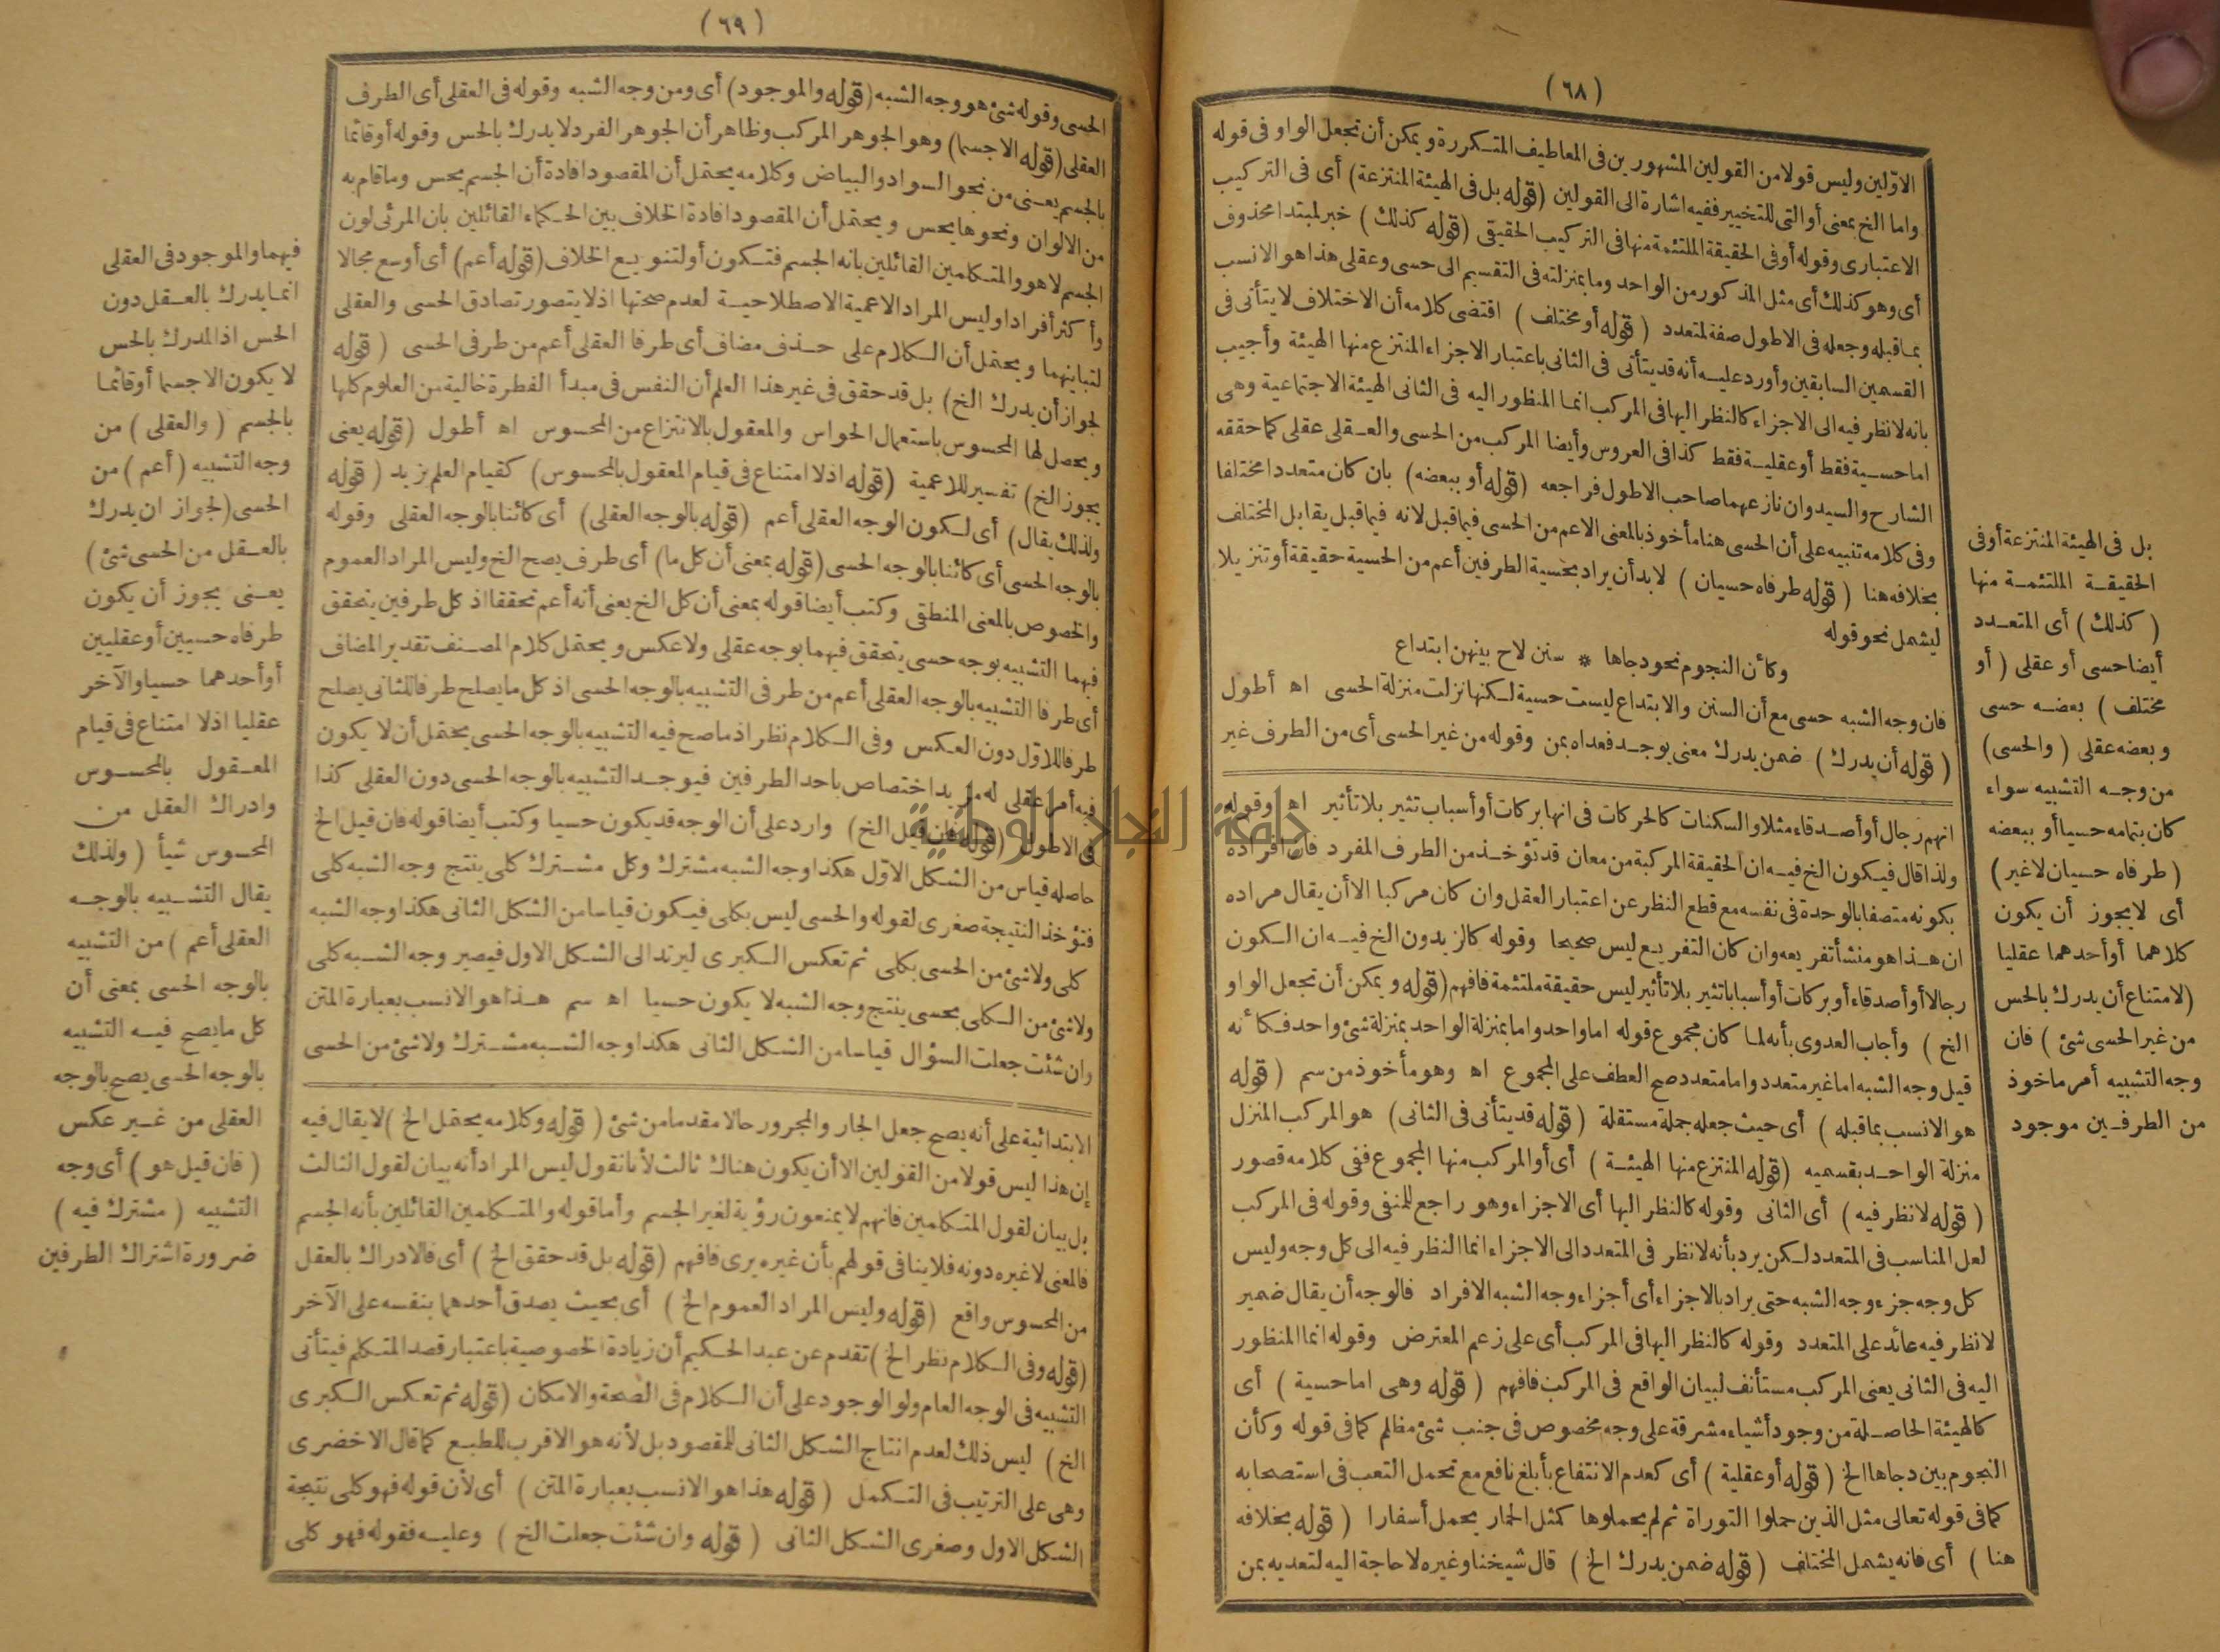 (٦٨)
الاوّلين وليس قولا من القولين المشهورين في المعاطيف المتكررة ويمكن أن تجعل الواو فى قوله
واما الخ بمعنى أو التى للتخيير ففيه اشارة الى القولين (قوله بل فى الهيئة المنتزعة) أى فى التركيب
الاعتبارى وقوله أو فى الحقيقة الملتئمة منها فى التركيب الحقيقى (قوله كذلك) خبر لمبتدا محذوف
أى وهو كذلك أى مثل المذكور من الواحد وما بمنزلته فى التقسيم الى حسى وعقلى هذا هو الانسب
بما قبله وجعله فى الاطول صفة لمتعدد (قوله أو مختلف) اقتضى كلامه أن الاختلاف لا يتأتى فى
القسمين السابقين وأورد عليه أنه قد يتأتى فى الثانى باعتبار الاجزاء المنتزع منها الهيئة وأجيب
بانه لا نظر فيه الى الاجزاء كالنظر اليها فى المركب انما المنظور اليه فى الثانى الهيئة الاجتماعية وهى
اما حسية فقط أو عقلية فقط كذا فى العروس وأيضا المركب من الحسى والعقلى عقلى كما حققه
الشارح والسيد وان نازعهما صاحب الاطول فراجعه (قوله أو ببعضه) بان كان متعددا مختلفا
وفى كلامه تنبيه على أن الحسى هنا مأخوذ بالمعنى الاعم من الحسى فيما قبل لانه فيما قبل يقابل المختلف
بخلافه هنا (قوله طرفاه حسيان) لا بد أن يراد بحسية الطرفين أعم من الحسية حقيقة أو تنزيلا
ليشمل نحو قوله
وكأن النجوم نحو دجاها * سنن لاح بينهن ابتداع
فان وجه الشبه حسى مع أن السنن والابتداع ليست حسية لكنها نزلت منزلة الحسى اه أطول
(قوله أن يدرك) ضمن يدرك معنى يوجد فعداه بمن وقوله من غير الحسى أى من الطرف غير
بل فى الهيئة المنتزعة أو فى
الحقيقة الملتئمة منها
(كذلك) أى المتعدد
أيضا حسى أو عقلى (أو
مختلف) بعضه حسى
وبعضه عقلى (والحسى)
من وجه التشبيه سواء
كان بتمامه حسيا أو ببعضه
(طرفاه حسيان لا غير)
أى لا يجوز أن يكون
كلاهما أو أحدهما عقليا
(لامتناع أن يدرك بالحس
من غير الحسى شئ) فان
وجه التشبيه أمر مأخوذ
من الطرفين موجود
انهم رجال أو أصدقاء مثلا والسكنات كالحركات فى انها بركات أو أسباب تثير بلا تأثير اه وقوله
ولذا قال فيكون الخ فيه ان الحقيقة المركبة من معان قد تؤخذ من الطرف المفرد فان افراده
بكونه متصفا بالوحدة فى نفسه مع قطع النظر عن اعتبار العقل وان كان مركبا الا أن يقال مراده
ان هذا هو منشأ تفريعه وان كان التفريع ليس صحيحا وقوله كالزيدون الخ فيه ان الكون
رجالا أو أصدقاء أو بركات أو أسبابا تثير بلا تأثير ليس حقيقة ملتئمة فافهم (قوله ويمكن أن تجعل الواو
الخ) وأجاب العدوى بأنه لما كان مجموع قوله اما واحد واما بمنزلة الواحد بمنزلة شئ واحد فكأنه
قيل وجه الشبه اما غير متعدد واما متعدد صح العطف على المجموع اه وهو مأخوذ من سم (قوله
هو الانسب بما قبله) أى حيث جعله جملة مستقلة (قوله قد يتأتى فى الثانى) هو المركب المنزل
منزلة الواحد بقسميه (قوله المنتزع منها الهيئة) أى أو المركب منها المجموع ففى كلامه قصور
(قوله لا نظر فيه) أى الثانى وقوله كالنظر اليها أى الاجزاء وهو راجع للمنفى وقوله فى المركب
لعل المناسب فى المتعدد لكن يرد بأنه لا نظر فى المتعدد الى الاجزاء انما النظر فيه الى كل وجه وليس
كل وجه جزء وجه الشبه حتى يراد بالاجزاء أى أجزاء وجه الشبه الافراد فالوجه أن يقال ضمير
لا نظر فيه عائد على المتعدد وقوله كالنظر اليها فى المركب أى على زعم المعترض وقوله انما المنظور
اليه فى الثانى يعنى المركب مستأنف لبيان الواقع فى المركب فافهم (قوله وهى اما حسية) أى
كالهيئة الحاصلة من وجود أشياء مشرقة على وجه مخصوص فى جنب شئ مظلم كما فى قوله وكأن
النجوم بين دجاها الخ (قوله أو عقلية) أى كعدم الانتفاع بأبلغ نافع مع تحمل التعب فى استصحابه
كما فى قوله تعالى مثل الذين حملوا التوراة ثم لم يحملوها كمثل الحمار يحمل أسفارا (قوله بخلافه
هنا) أى فانه يشمل المختلف (قوله ضمن يدرك الخ) قال شيخنا وغيره لا حاجة اليه لتعديه بمن
(٦٩)
الحسى وقوله شئ هو وجه الشبه (قوله والموجود) أى ومن وجه الشبه وقوله فى العقلى أى الطرف
العقلى (قوله الا جسما) وهو الجوهر المركب وظاهر أن الجوهر الفرد لا يدرك بالحس وقوله أو قائما
بالجسم يعنى من نحو السواد والبياض وكلامه يحتمل أن المقصود افادة أن الجسم يحس وما قام به
من الالوان ونحوها يحس ويحتمل أن المقصود افادة الخلاف بين الحكماء القائلين بان المرئى لون
الجسم لا هو والمتكلمين القائلين بانه الجسم فتكون أو لتنويع الخلاف (قوله أعم) أى أوسع مجالا
وأكثر أفرادا وليس المراد الاعمية الاصطلاحية لعدم صحتها اذ لا يتصور تصادق الحسى والعقلى
لتباينهما ويحتمل أن الكلام على حذف مضاف أى طرفا العقلى أعم من طرفى الحسى (قوله
لجواز أن يدرك الخ) بل قد حقق فى غير هذا العلم أن النفس فى مبدأ الفطرة خالية من العلوم كلها
ويحصل لها المحسوس باستعمال الحواس والمعقول بالانتزاع من المحسوس اه أطول (قوله يعنى
يجوز الخ) تفسير للاعمية (قوله اذ لا امتناع فى قيام المعقول بالمحسوس) كقيام العلم بزيد (قوله
ولذلك يقال) أى لكون الوجه العقلى أعم (قوله بالوجه العقلى) أى كائنا بالوجه العقلى وقوله
بالوجه الحسى أى كائنا بالوجه الحسى (قوله بمعنى أن كل ما) أى طرف يصح الخ وليس المراد العموم
والخصوص بالمعنى المنطقى وكتب أيضا قوله بمعنى أن كل الخ يعنى أنه أعم تحققا اذ كل طرفين يتحقق
فيهما التشبيه بوجه حسى يتحقق فيهما بوجه عقلى ولا عكس ويحتمل كلام المصنف تقدير المضاف
أى طرفا التشبيه بالوجه العقلى أعم من طرفى التشبيه بالوجه الحسى اذ كل ما يصلح طرفا للثانى يصلح
طرفا للاوّل دون العكس وفى الكلام نظر اذ ما صح فيه التشبيه بالوجه الحسى يحتمل أن لا يكون
فيه أمر عقلى له مزيد اختصاص باحد الطرفين فيوجد التشبيه بالوجه الحسى دون العقلى كذا
فى الاطول (قوله فان قيل الخ) وارد على أن الوجه قد يكون حسيا وكتب أيضا قوله فان قيل الخ
حاصله قياس من الشكل الاوّل هكذا وجه الشبه مشترك وكل مشترك كلى ينتج وجه الشبه كلى
فتؤخذ النتيجة صغرى لقوله والحسى ليس بكلى فيكون قياسا من الشكل الثانى هكذا وجه الشبه
كلى ولا شئ من الحسى بكلى ثم تعكس الكبرى ليرتد الى الشكل الاول فيصير وجه الشبه كلى
ولا شئ من الكلى بحسى ينتج وجه الشبه لا يكون حسيا اه سم هذا هو الانسب بعبارة المتن
وان شئت جعلت السؤال قياسا من الشكل الثانى هكذا وجه الشبه مشترك ولا شئ من الحسى
فيهما والموجود فى العقلى
انما يدرك بالعقل دون
الحس اذ المدرك بالحس
لا يكون الا جسما أو قائما
بالجسم (والعقلى) من
وجه التشبيه (أعم) من
الحسى (لجواز ان يدرك
بالعقل من الحسى شئ)
يعنى يجوز أن يكون
طرفاه حسيين أو عقليين
أو أحدهما حسيا والآخر
عقليا اذ لا امتناع فى قيام
المعقول بالمحسوس
وادراك العقل من
المحسوس شيأ (ولذلك
يقال التشبيه بالوجه
العقلى أعم) من التشبيه
بالوجه الحسى بمعنى أن
كل ما يصح فيه التشبيه
بالوجه الحسى يصح بالوجه
العقلى من غير عكس
(فان قيل هو) أى وجه
التشبيه (مشترك فيه)
ضرورة اشتراك الطرفين
الابتدائية على أنه يصح جعل الجار والمجرور حالا مقدما من شئ (قوله وكلامه يحتمل الخ) لا يقال فيه
إن هذا ليس قولا من القولين الا أن يكون هناك ثالث لأنا نقول ليس المراد أنه بيان لقول الثالث
بل بيان لقول المتكلمين فانهم لا يمنعون رؤية لغير الجسم وأما قوله والمتكلمين القائلين بأنه الجسم
فالمعنى لا غيره دونه فلا ينافى قولهم بأن غيره يرى فافهم (قوله بل قد حقق الخ) أى فالادراك بالعقل
من المحسوس واقع (قوله وليس المراد العموم الخ) أى بحيث يصدق أحدهما بنفسه على الآخر
(قوله وفى الكلام نظر الخ) تقدم عن عبد الحكيم أن زيادة الخصوصية باعتبار قصد المتكلم فيتأتى
التشبيه فى الوجه العام ولو الوجود على أن الكلام فى الصحة والامكان (قوله ثم تعكس الكبرى
الخ) ليس ذلك لعدم انتاج الشكل الثانى للمقصود بل لأنه هو الاقرب للطبع كما قال الاخضرى
وهى على الترتيب فى التكمل (قوله هذا هو الانسب بعبارة المتن) أى لأن قوله فهو كلى نتيجة
الشكل الاول وصغرى الشكل الثانى (قوله وان شئت جعلت الخ) وعليه فقوله فهو كلى
جامعة النجاح الوطنية